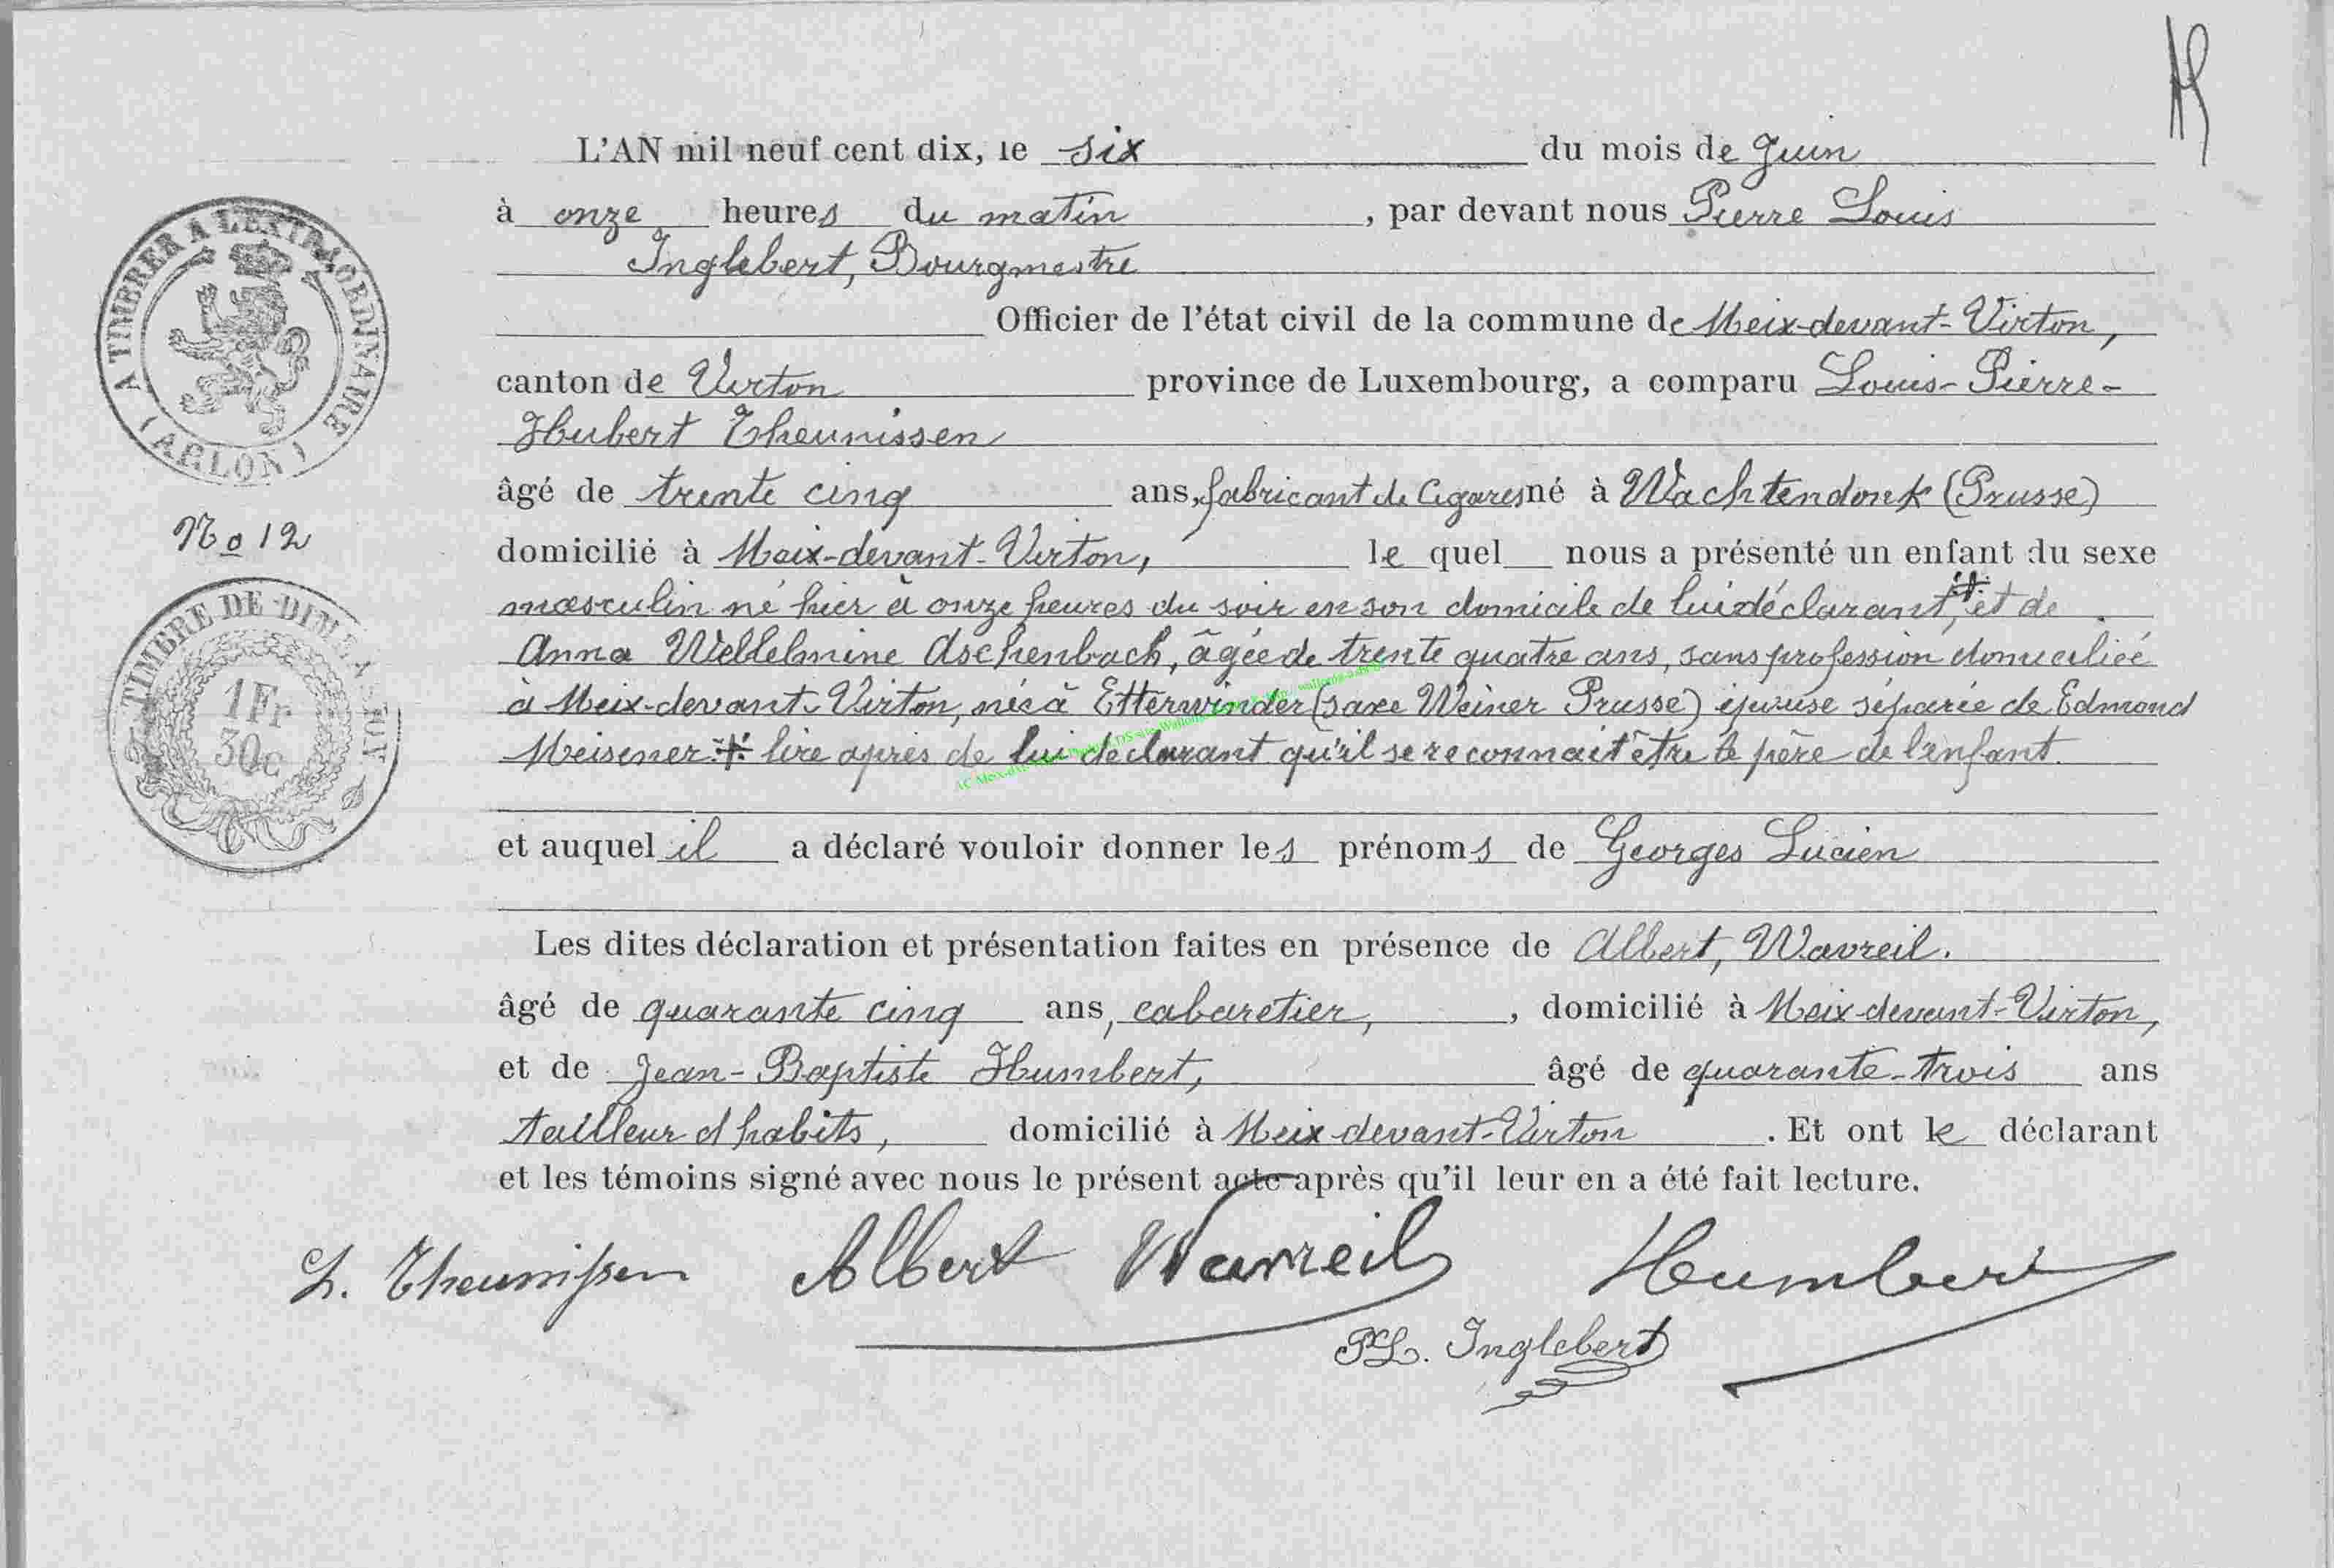 L'AN mil neuf cent dix, le six du mois de Juin
à onze heures du matin, par devant nous Pierre Louis
Inglebert, Bourgmestre
Officier de l'état civil de la commune de Meix-devant-Virton,
canton de Virton province de Luxembourg, a comparu Louis-Pierre-
Hubert Theunissen
âgé de trente cinq ans, fabricant de Cigares né à Wachtendonk (Prusse)
domicilié à Meix-devant-Virton, le quel nous a présenté un enfant du sexe
masculin né hier à onze heures du soir en son domicile de lui déclarant, et de
Anna Willelmine Aschenbach, âgée de trente quatre ans, sans profession domiciliée
à Meix-devant-Virton, née à Etterwinder (Saxe Weiner Prusse) épouse séparée de Edmond
Meisener ‡ lire après de lui déclarant qu'il se reconnait être le père de l'enfant.
et auquel il a déclaré vouloir donner les prénoms de Georges Lucien
Les dites déclaration et présentation faites en présence de Albert, Wavreil.
âgé de quarante cinq ans, cabaretier, , domicilié à Meix-devant-Virton,
et de Jean-Baptiste Humbert, âgé de quarante-trois ans
tailleur d habits, domicilié à Meix-devant-Virton. Et ont le déclarant
et les témoins signé avec nous le présent acte après qu'il leur en a été fait lecture.
L. Theunissen Albert Wavreil Humbert
PL. Inglebert
A TIMBRER A L'EXTRAORDINAIRE
(ARLON)
No 12
TIMBRE DE DIMENSION
1 Fr
30c